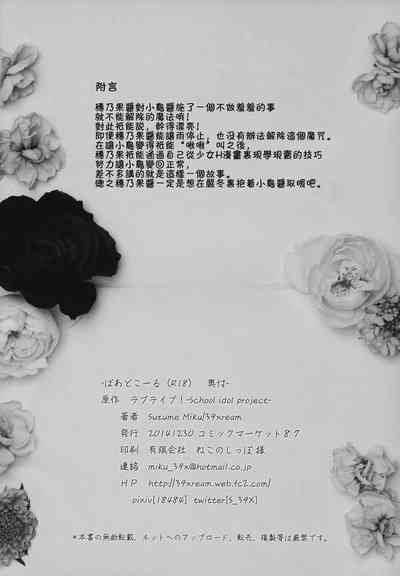 附言
穗乃果醬對小鳥醬施了一個不做羞羞的事
就不能解除的魔法唷!
對此祗能説,幹得漂亮!
即使穗乃果醬能讓雨停止,也没有辦法解除這個魔咒。
在讓小鳥變得祗能“啾啾”叫之後,
穗乃果祗能通過自己從少女H漫畫裏現學現賣的技巧
努力讓小鳥變回正常,
差不多講的就是這樣一個故事。
總之穗乃果醬一定是想在嚴冬裏抱着小鳥醬取暖吧。
-ばわどこーる (R18) 奥付-
原作 ラブライブ!-School idol project-
著者 Suzume Miku/39xream
発行 20141230 コミックマーケット87
印刷 有限会社 ねこのしっぽ様
連絡 miku_39x@hotmail.co.jp
HP http://39xream.web.fc2.com/
pixiv[18484] twitter[S_39X]
*本書の無断転載、ネットへのアップロード、転売、複製等は厳禁です。